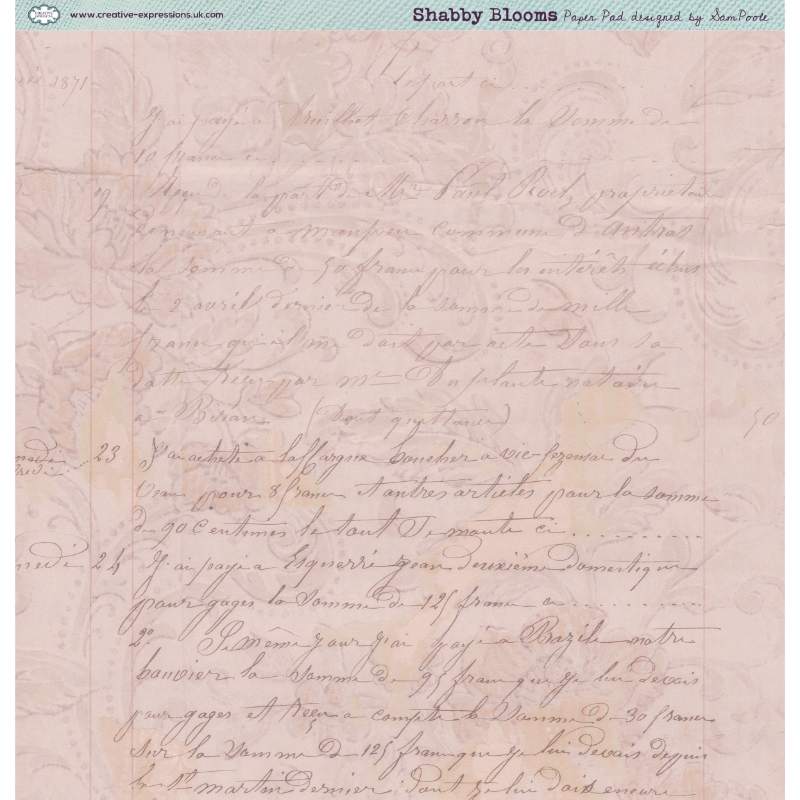 www.creative-expressions.uk.com
Shabby Blooms Paper Pad designed by Sam Poole
1871
Report ci . . . .
J'ai payé a Charron la Somme de
10 francs ci . . . .
19 Reçu de la part de Mr Paul, propriétaire
Commune d'Antras
la somme de 50 francs pour les intérêts échus
le 2 avril dernier de la somme de mille
francs qu'il me doit par acte Dans sa
datte reçu par me notaire
a (Dont quittance) 50
23 J'ai acheté a Laffargue boucher a vic-fezensac du
veau pour 8 francs et autres articles pour la somme
de 90 Centimes le tout Se monte ci . . . . . . . . .
24 J'ai payé a Esquerré jean deuxième domestique
pour gages la Somme de 125 francs ci . . . . . . . . .
2o Le même jour j'ai payé a Bazile notre
bouvier la somme de 95 francs que je lui devais
pour gages et reçu a compte la Somme de 30 francs
sur la Somme de 125 francs que je lui devais depuis
la St martin dernier Dont je lui dois encore